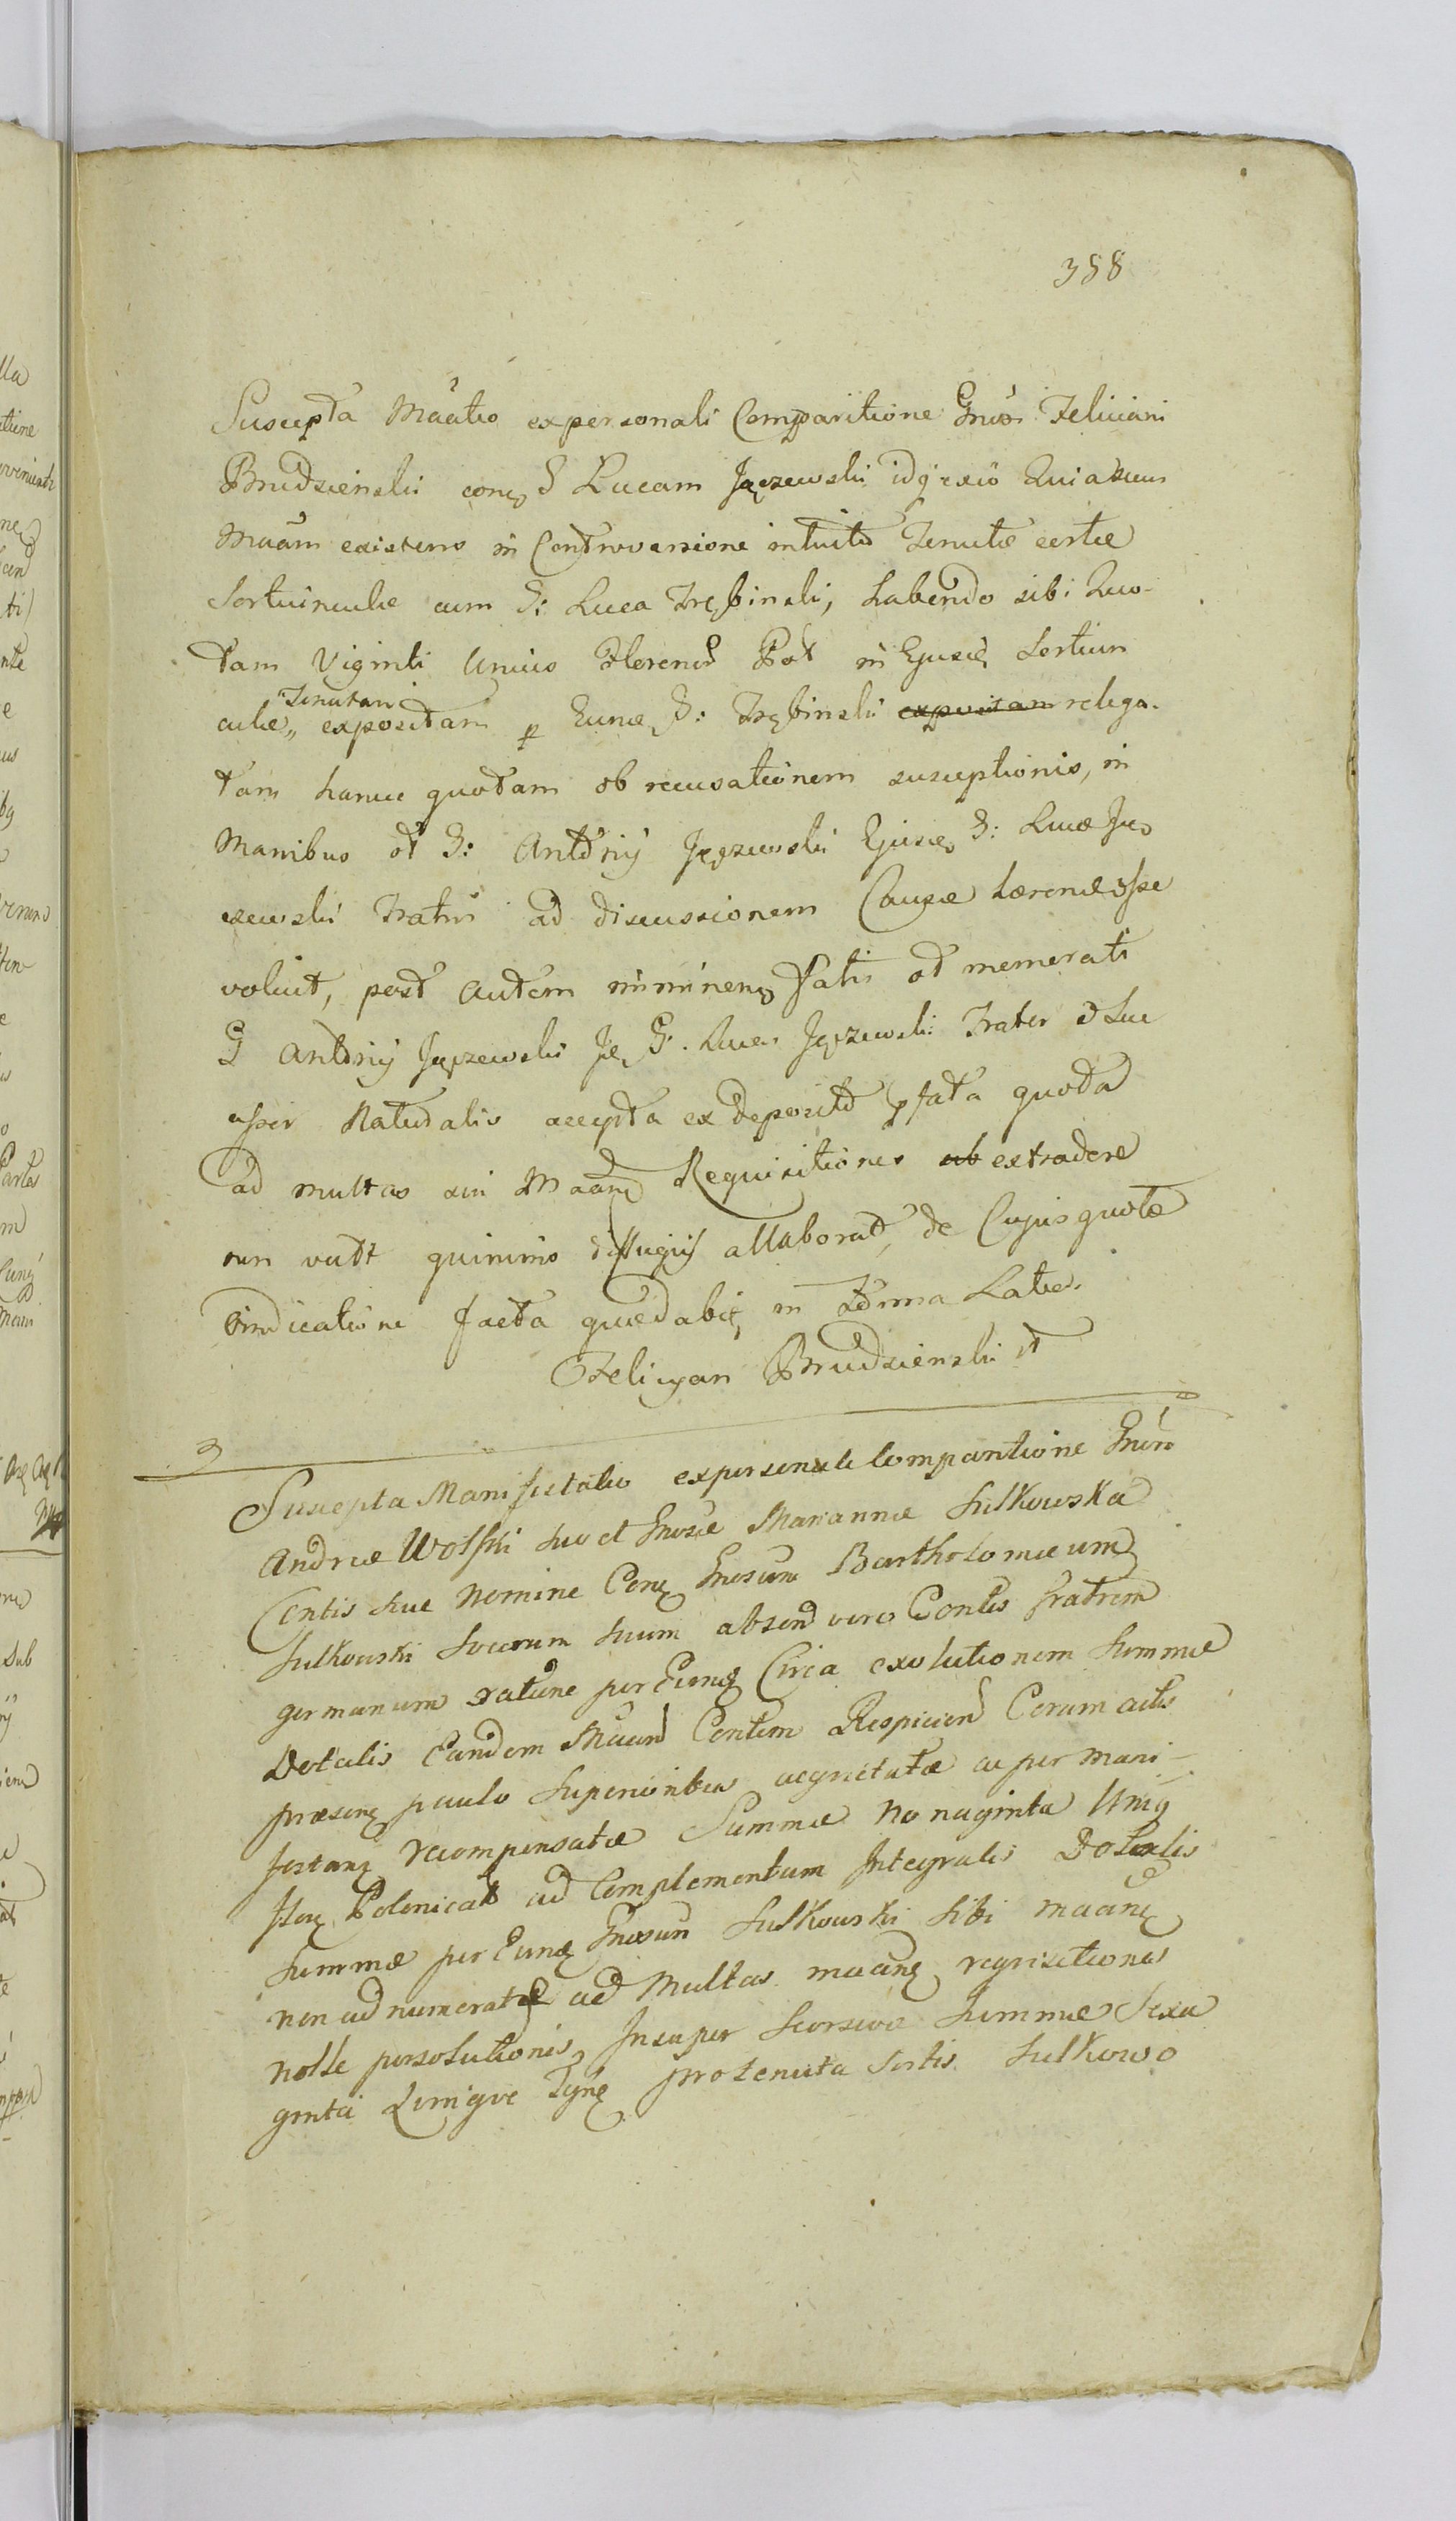 358
Suscepta Maãtio ex personali Comparitione Gnõsi Feliciani
Brudzienski conq G Lucam Jączewski idq exiõ Quia cum
Maãns existens in Controversione intuitu Tenutæ certæ
Sortiunculæ cum G: Luca Trębinski, habendo sibi Quo-
tam Viginti Unius Florenor Pol in Ejusdē Sortiun
culæ Tenutam expositam p Eundē G: Trębinski expositam relega-
tam hancce quotam ob recusationem susceptionis, in
Manibus ol G: Antonij Jączewski Ejusdē G: Lucæ Ją-
czewski Fratris ad discussionem Causæ hærendē esse
voluit, post autem imminenq Fatis ol memorati
G Antonij Jączewski Jdē G. Lucas Jączewski Frater et Suc
cessor Naturalis accepta ex deposito pfata quota
ad multas sui Maãnd Requisitiones ab extradere
non vult quinimo diffugijs allaborat, de Cujus quotæ
vindicatione facta quædabit in Forma Latior
Felicyan Brudzienski
Suscepta Manifestatio ex personali Comparitione Gnõsi
Andreæ Wolski suo et Gnosæ Mariannæ Sulkowska
Contis suæ Nomine Conq Gnosum Bartholomæum
Sulkowski Socerum suum absend vero Contis fratrem
germanum ratione per Eundē Circa exolutionem Summæ
Dotalis Eandem Maãnd Contem Respiciend Corum actis
præsenq paulo Superioribus acquietatæ ac per Mani-
festanq recompensatæ Summæ Nonaginta Uniq
flor Polonicales ad Complementum Integralis Dotalis
Summæ per Eundē Gnosum Sulkowski Sibi maanq
non adnumeratæ ad Multas maanq reqvisitiones
nolle persolutionis, Insuper Seorsivæ Summæ Sexa
ginta Qvinqve Tynf pro tenuta Sortis Sulkowo